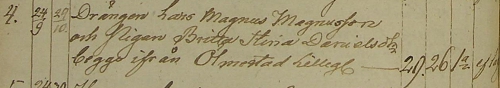 4. 24/9 20/10. Drängen Lars Magnus Magnusson
och Pigan Britta Stina Danielsdr
begge ifrån Ölmestad Lilleg — 29. 26